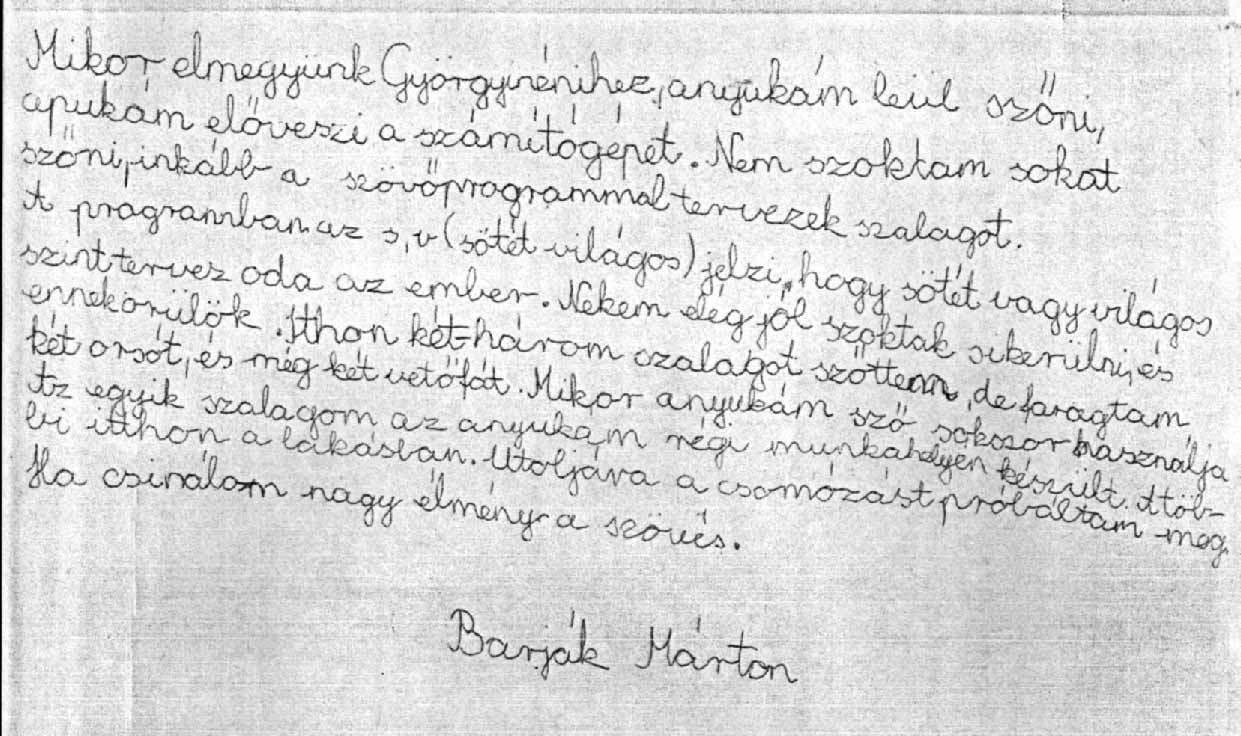 Mikor elmegyünk Györgyinénihez, anyukám leül szőni,
apukám előveszi a számítógépet. Nem szoktam sokat
szőni, inkább a szövőprogrammal tervezek szalagot.
A programban az s, v (sötét világos) jelzi, hogy sötét vagy világos
színt tervez oda az ember. Nekem elég jól szoktak sikerülni, és
ennek örülök. Itthon két-három szalagot szőttem, de faragtam
két orsót, és még két vetőfát. Mikor anyukám sző sokszor használja
Az egyik szalagom az anyukám régi munkahelyén készült. A töb-
bi itthon a lakásban. Utoljára a csomózást próbáltam meg.
Ha csinálom nagy élmény a szövés.
Barják Márton